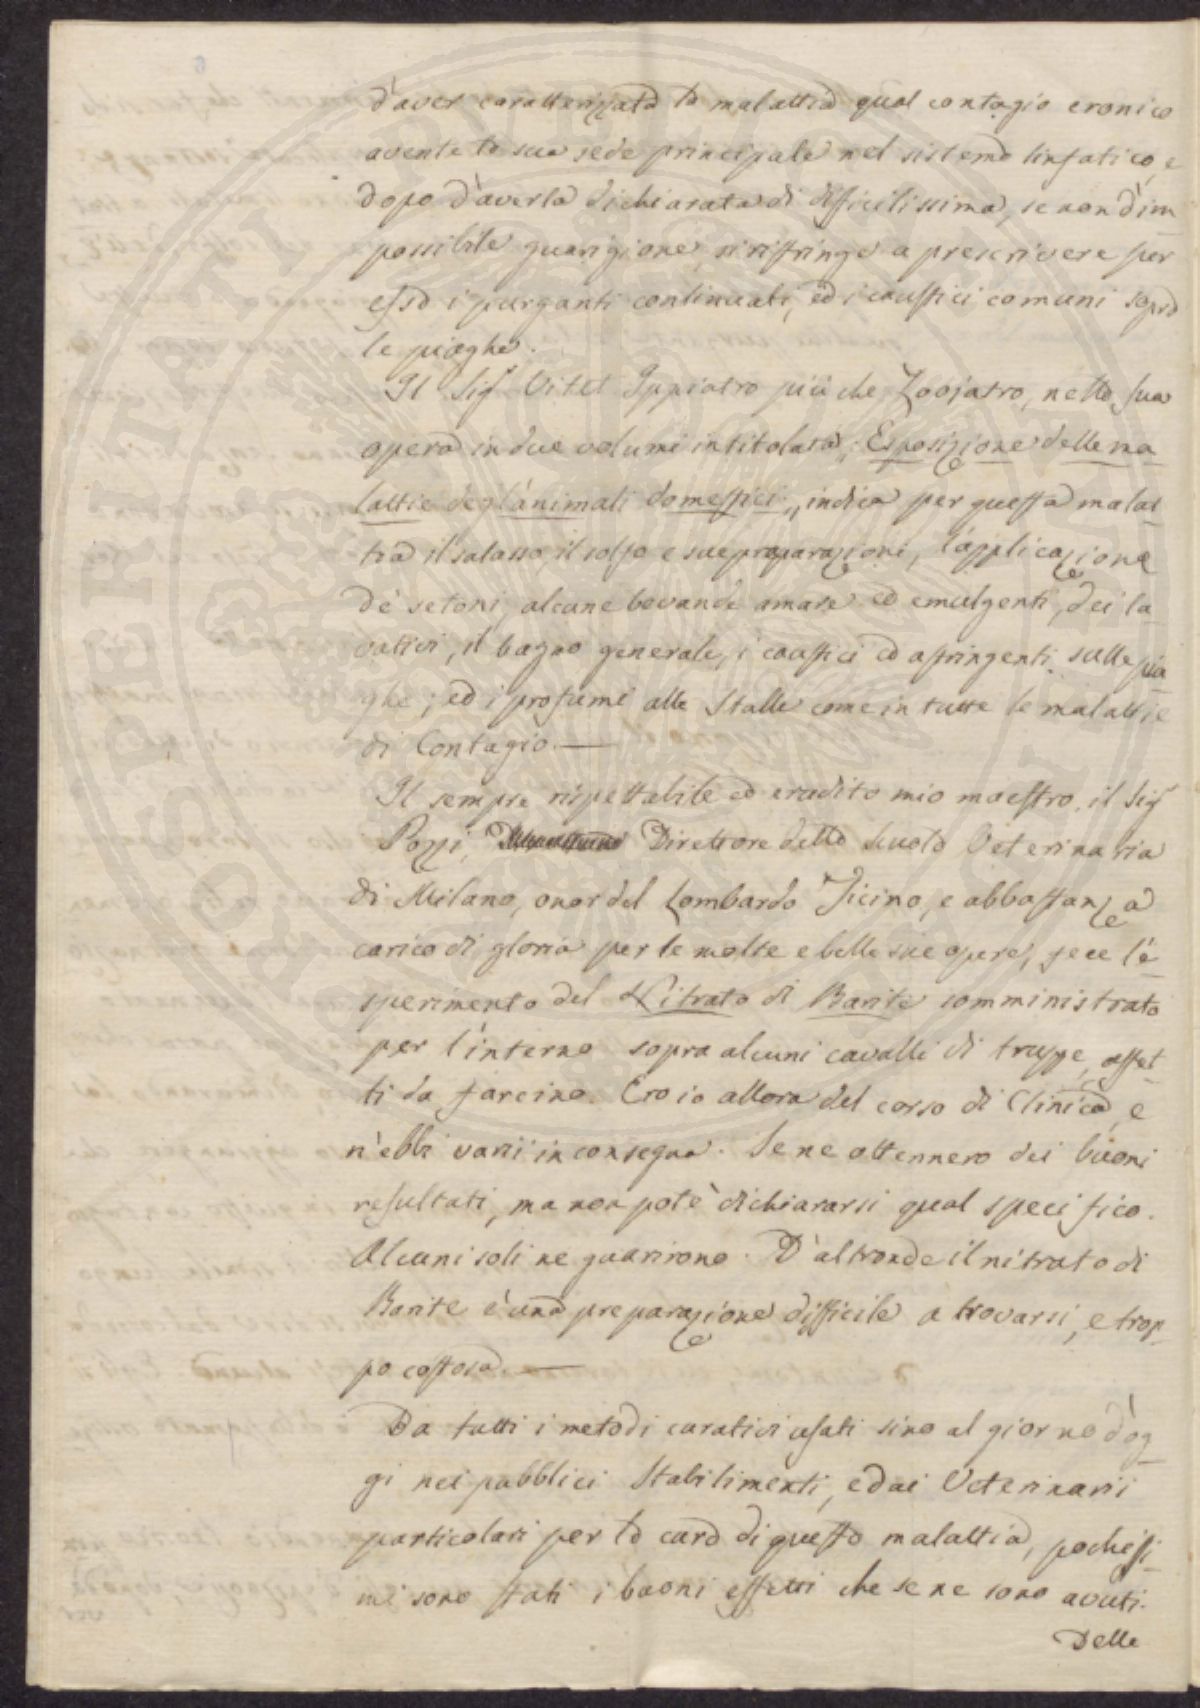 d'aver caratterizzata la malattia qual contagio cronico
avente la sua sede principale nel sistema linfatico, e
dopo d'averla dichiarata di difficilissima, se non d'im
possibile guarigione, si ristringe a prescrivere per
essa i purganti continuati, ed i caustici comuni sopra
le piaghe.
Il Sigr Vitet Ippiatro più che Zoojatro, nella sua
opera in due volumi intitolata „ Esposizione delle ma
lattie degl'animali domestici „ indica per questa malat
tia il salasso, il solfo e sue preparazioni, l'applicazione
de' setoni, alcune bevande amare ed emulgenti, dei la
vativi, il bagno generale, i caustici ed astringenti sulle pia
ghe; ed i profumi alle Stalle come in tutte le malattie
di Contagio. —
Il sempre rispettabile ed erudito mio maestro, il Sigr
Pozzi, Direttore della Scuola Veterinaria
di Milano, onor del Lombardo Ticino, e abbastanza
carico di gloria per le molte e belle sue opere, fece l'e
sperimento del Nitrato di Barite somministrato
per l'interno sopra alcuni cavalli di truppe, affet
ti da farcino. Ero io allora del corso di Clinica, e
n'ebbi varii in consegna. Se ne ottennero dei buoni
resultati, ma non potè dichiararsi qual specifico.
Alcuni soli ne guarirono. D'altronde il nitrato di
Barite è una preparazione difficile a trovarsi, e trop
po costosa. —
Da tutti i metodi curativi usati sino al giorno d'og
gi nei pubblici Stabilimenti, e dai Veterinarii
particolari per la cura di questa malattia, pochissi
mi sono stati i buoni effetti che se ne sono avuti.
Delle